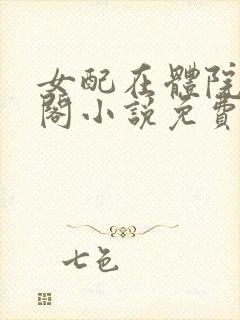 女配在體院
閣小說免費
七色